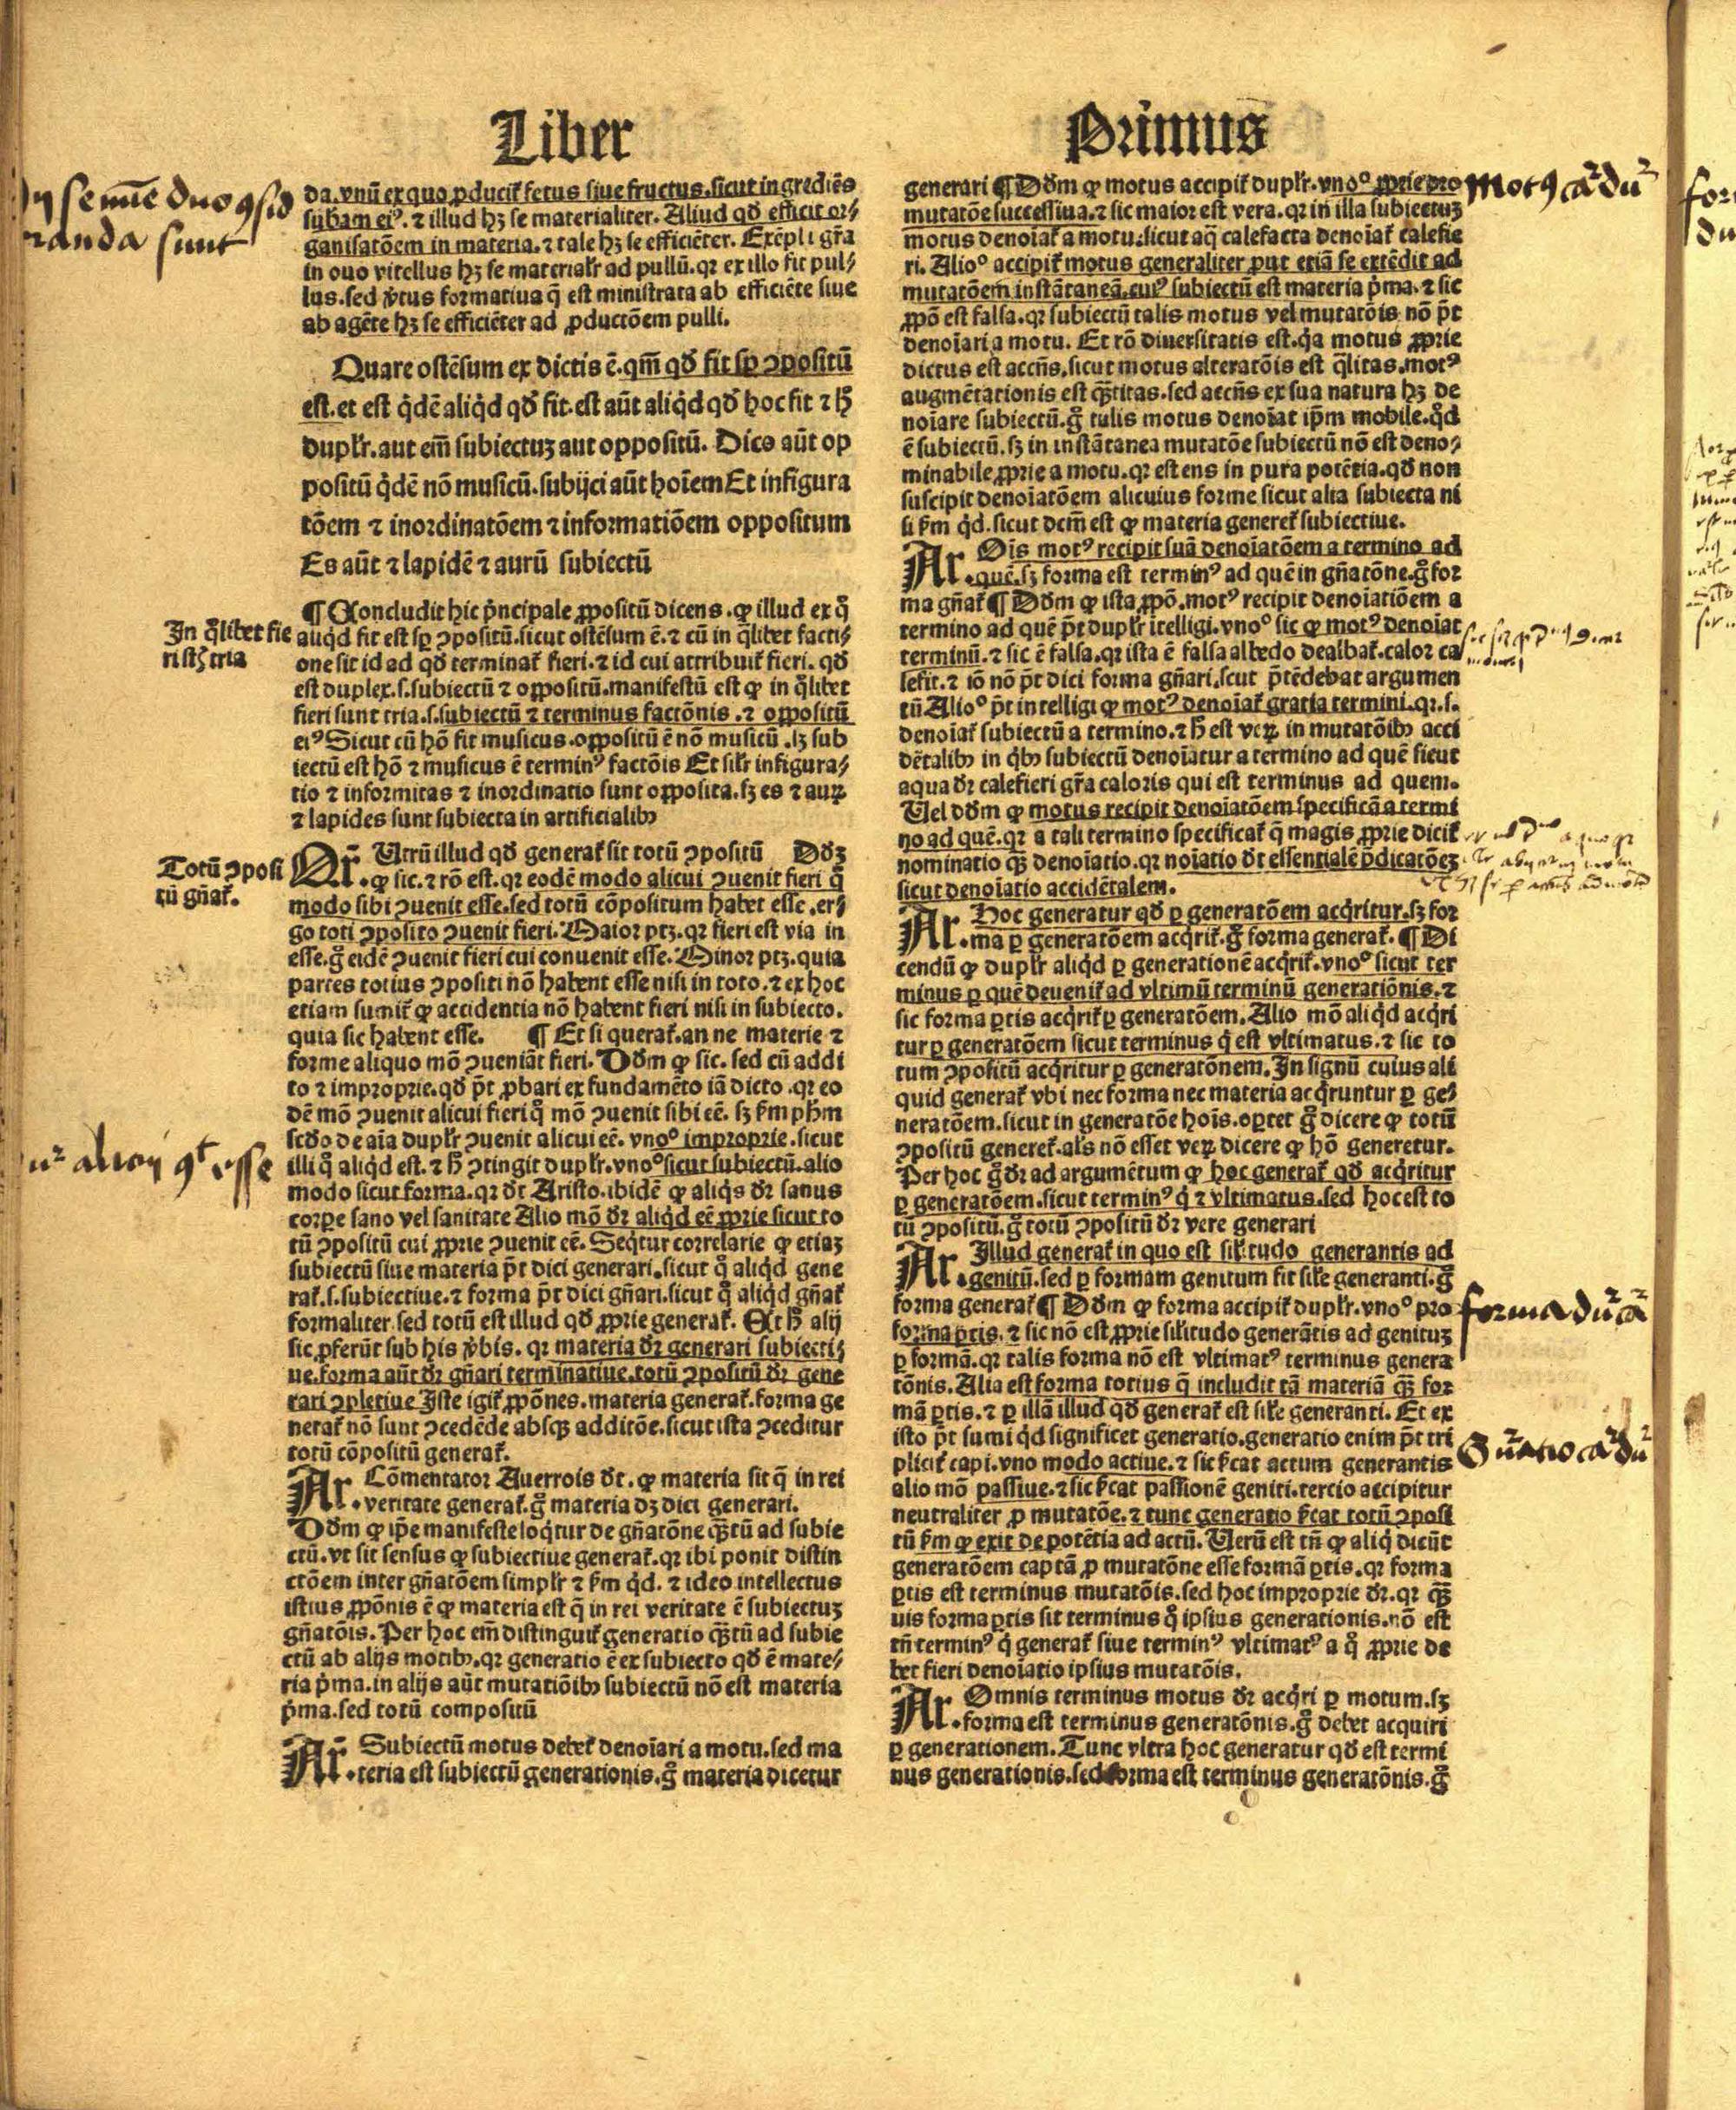 Liber
Primus
In semīe duo ꝯsid
randa sunt
da. vnū ex quo ꝓducit̄ fetus siue fructus. sicut ingrediēs
subam eiꝰ. ⁊ illud hꝫ se materialiter. Aliud qđ efficit or⸗
ganisatōem in materia. ⁊ tale hꝫ se efficiēter. Exēpli gr̄a
in ouo vitellus hꝫ se materialr̄ ad pullū. qꝛ ex illo fit pul⸗
lus. sed v̓tus formatiua q̄ est ministrata ab efficiēte siue
ab agēte hꝫ se efficiēter ad ꝓductōem pulli.
Quare ostēsum ex dictis ē. qm̄ qđ fit sꝑ ꝯpositū
est. et est q̇dē aliq̇d qđ fit. est aūt aliq̇d qđ hoc fit ⁊ ħ
duplr̄. aut em̄ subiectuꝫ aut oppositū. Dico aūt op
positū q̇dē nō musicū. subijci aūt hoīem Et infigura
tōem ⁊ inordinatōem ⁊ informatiōem oppositum
Es aūt ⁊ lapidē ⁊ aurū subiectū
In q̄libet fie
ri sūt tria
¶ Concludit hic pͥncipale ꝓpositū dicens. ꝙ illud ex qͦ
aliq̇d fit est sꝑ ꝯpositū. sicut ostēsum ē. ⁊ cū in q̄libet facti⸗
one sit id ad qđ terminat̄ fieri. ⁊ id cui attribuit̄ fieri. qđ
est duplex. s. subiectū ⁊ oppositū. manifestū est ꝙ in q̄libet
fieri sunt tria. s. subiectū ⁊ terminus factōnis. ⁊ oppositū
eiꝰ Sicut cū hō fit musicus. oppositū ē nō musicū. sꝫ sub
iectū est hō ⁊ musicus ē terminꝰ factōis Et silr̄ infigura⸗
tio ⁊ informitas ⁊ inordinatio sunt opposita. sꝫ es ⁊ auꝝ
⁊ lapides sunt subiecta in artificialibꝫ
Totū ꝯposi
tū gn̄at̄.
Qr̄. Utrū illud qđ generat̄ sit totū ꝯpositū Dđꝫ
ꝙ sic. ⁊ rō est. qꝛ eodē modo alicui ꝯuenit fieri qͦ
modo sibi ꝯuenit esse. sed totū cōpositum habet esse. er⸗
go toti ꝯposito ꝯuenit fieri. Maior ptꝫ. qꝛ fieri est via in
esse. gͦ eidē ꝯuenit fieri cui conuenit esse. Minor ptꝫ. quia
partes totius ꝯpositi nō habent esse nisi in toto. ⁊ ex hoc
etiam sumit̄ ꝙ accidentia nō habent fieri nisi in subiecto.
quia sic habent esse. ¶ Et si querat̄. an ne materie ⁊
forme aliquo mō ꝯueniāt fieri. Dđm ꝙ sic. sed cū addi
to ⁊ improprie. qđ pt̄ ꝓbari ex fundamēto iā dicto. qꝛ eo
dē mō ꝯuenit alicui fieri qͦ mō ꝯuenit sibi eē. sꝫ ẜm pħm
scđo de aīa duplr̄ ꝯuenit alicui eē. vnoº improprie. sicut
illi qͦ aliq̇d est. ⁊ ħ ꝯtingit duplr̄. vnoº sicut subiectū. alio
modo sicut forma. qꝛ dt̄ Aristo. ibidē ꝙ aliq̇s dꝛ sanus
corꝑe sano vel sanitate Alio mō dꝛ aliq̇d eē ꝓprie sicut to
tū ꝯpositū cui ꝓprie ꝯuenit eē. Seq̇tur correlarie ꝙ etiaꝫ
subiectū siue materia pt̄ dici generari. sicut qͦ aliq̇d gene
rat̄. s. subiectiue. ⁊ forma pt̄ dici gn̄ari. sicut qͦ aliq̇d gn̄at̄
formaliter. sed totū est illud qđ ꝓprie generat̄. Et ħ alij
sic ꝓferūt sub his v̓bis. qꝛ materia dꝛ generari subiecti⸗
ue. forma aūt dꝛ gn̄ari terminatiue. totū ꝯpositū dꝛ gene
rari ꝯpletiue Iste igit̄ ꝓpōnes. materia generat̄. forma ge
nerat̄ nō sunt ꝯcedēde absqꝫ additōe. sicut ista ꝯceditur
totū cōpositū generat̄.
alicui ꝯt̄ esse
Ar. Cōmentator Auerrois dt̄. ꝙ materia sit q̄ in rei
veritate generat̄. gͦ materia dꝫ dici generari.
Dđm ꝙ ip̄e manifeste loq̇tur de gn̄atōne qꝫtū ad subie
ctū. vt sit sensus ꝙ subiectiue generat̄. qꝛ ibi ponit distin
ctōem inter gn̄atōem simplr̄ ⁊ ẜm q̇d. ⁊ ideo intellectus
istius ꝓpōnis ē ꝙ materia est q̄ in rei veritate ē subiectuꝫ
gn̄atōis. Per hoc em̄ distinguit̄ generatio qꝫtū ad subie
ctū ab alijs motibꝫ. qꝛ generatio ē ex subiecto qđ ē mate⸗
ria pͥma. in alijs aūt mutatiōibꝫ subiectū nō est materia
pͥma. sed totū compositū
Ar̄. Subiectū motus debet̄ denoīari a motu. sed ma
teria est subiectū generationis. gͦ materia dicetur
generari ¶ Dđm ꝙ motus accipit̄ duplr̄. vnoº ꝓprie pro
mutatōe successiua. ⁊ sic maior est vera. qꝛ in illa subiectuꝫ
motus denoīat̄ a motu. sicut aq̄ calefacta denoīat̄ calefie
ri. Alioº accipit̄ motus generaliter ꝓut etiā se extēdit ad
mutatōem instātaneā. cuiꝰ subiectū est materia pͥma. ⁊ sic
ꝓpō est falsa. qꝛ subiectū talis motus vel mutatōis nō pt̄
denoīari a motu. Et rō diuersitatis est. q̇a motus ꝓprie
dictus est accn̄s. sicut motus alteratōis est q̄litas. motꝰ
augmētationis est qꝫtitas. sed accn̄s ex sua natura hꝫ de
noīare subiectū. gͦ talis motus denoīat ip̄m mobile. q̇d
ē subiectū. sꝫ in instātanea mutatōe subiectū nō est deno⸗
minabile ꝓprie a motu. qꝛ est ens in pura potētia. qđ non
suscipit denoīatōem alicuius forme sicut alia subiecta ni
si ẜm q̇d. sicut dcm̄ est ꝙ materia generet̄ subiectiue.
Motꝰ
Ar. Oīs motꝰ recipit suā denoīatōem a termino ad
quē. sꝫ forma est terminꝰ ad quē in gn̄atōne. gͦ for
ma gn̄at̄ ¶ Dđm ꝙ ista ꝓpō. motꝰ recipit denoīatiōem a
termino ad quē pt̄ duplr̄ ītelligi. vnoº sic ꝙ motꝰ denoīat
terminū. ⁊ sic ē falsa. qꝛ ista ē falsa albedo dealbat̄. calor ca
lefit. ⁊ iō nō pt̄ dici forma gn̄ari. scut p̄tēdebat argumen
tū Alioº pt̄ intelligi ꝙ motꝰ denoīat̄ gratia termini. qꝛ. s.
denoīat̄ subiectū a termino. ⁊ ħ est veꝝ in mutatōibꝫ acci
dētalibꝫ in q̇bꝫ subiectū denoīatur a termino ad quē sicut
aqua dꝛ calefieri gr̄a caloris qui est terminus ad quem.
Uel dđm ꝙ motus recipit denoīatōem specificā a termi
no ad quē. qꝛ a tali termino specificat̄ q̄ magis ꝓprie dicit̄
nominatio qꝫ denoīatio. qꝛ noīatio dt̄ essentialē p̄dicatōeꝫ
sicut denoīatio accidētalem.
Ar. Hoc generatur qđ ꝑ generatōem acq̇ritur. sꝫ for
ma ꝑ generatōem acq̇rit̄. gͦ forma generat̄. ¶ Di
cendū ꝙ duplr̄ aliq̇d ꝑ generationē acq̇rit̄. vnoº sicut ter
minus ꝑ quē deuenit̄ ad vltimū terminū generatiōnis. ⁊
sic forma ꝑtis acq̇rit̄ ꝑ generatōem. Alio mō aliq̇d acq̇ri
tur ꝑ generatōem sicut terminus q̇ est vltimatus. ⁊ sic to
tum ꝯpositū acq̇ritur ꝑ generatōnem. In signū cuius ali
quid generat̄ vbi nec forma nec materia acq̇runtur ꝑ ge⸗
neratōem. sicut in generatōe hoīs. oꝑtet gͦ dicere ꝙ totū
ꝯpositū generet̄. al̓s nō esset veꝝ dicere ꝙ hō generetur.
Per hoc gͦ dꝛ ad argumētum ꝙ hoc generat̄ qđ acq̇ritur
ꝑ generatōem. sicut terminꝰ q̇ ⁊ vltimatus. sed hoc est to
tū ꝯpositū. gͦ totū ꝯpositū dꝛ vere generari
Ar. Illud generat̄ in quo est sil̓itudo generantis ad
genitū. sed ꝑ formam genitum fit sil̓e generanti. gͦ
forma generat̄ ¶ Dđm ꝙ forma accipit̄ duplr̄. vnoº pro
forma ꝑtis. ⁊ sic nō est ꝓprie sil̓itudo generātis ad genituꝫ
ꝑ formā. qꝛ talis forma nō est vltimatꝰ terminus genera
tōnis. Alia est forma totius q̄ includit tā materiā qꝫ for
mā ꝑtis. ⁊ ꝑ illā illud qđ generat̄ est sil̓e generanti. Et ex
isto pt̄ sumi q̇d significet generatio. generatio enim pt̄ tri
plicit̄ capi. vno modo actiue. ⁊ sic ẜcat actum generantis
alio mō passiue. ⁊ sic ẜcat passionē geniti. tercio accipitur
neutraliter ꝓ mutatōe. ⁊ tunc generatio ẜcat totū ꝯposi
tū ẜm ꝙ exit de potētia ad actū. Uerū est tn̄ ꝙ aliq̇ dicūt
generatōem captā ꝓ mutatōne esse formā ꝑtis. qꝛ forma
ꝑtis est terminus mutatōis. sed hoc improprie dꝛ. qꝛ qꝫ
uis forma ꝑtis sit terminus qͦ ipsius generationis. nō est
tn̄ terminꝰ q̇ generat̄ siue terminꝰ vltimatꝰ a qͦ ꝓprie de
bet fieri denoīatio ipsius mutatōis.
forma
Ar. Omnis terminus motus dꝛ acq̇ri ꝑ motum. sꝫ
forma est terminus generatōnis. gͦ debet acquiri
ꝑ generationem. Tunc vltra hoc generatur qđ est termi
nus generationis. sed forma est terminus generatōnis. gͦ